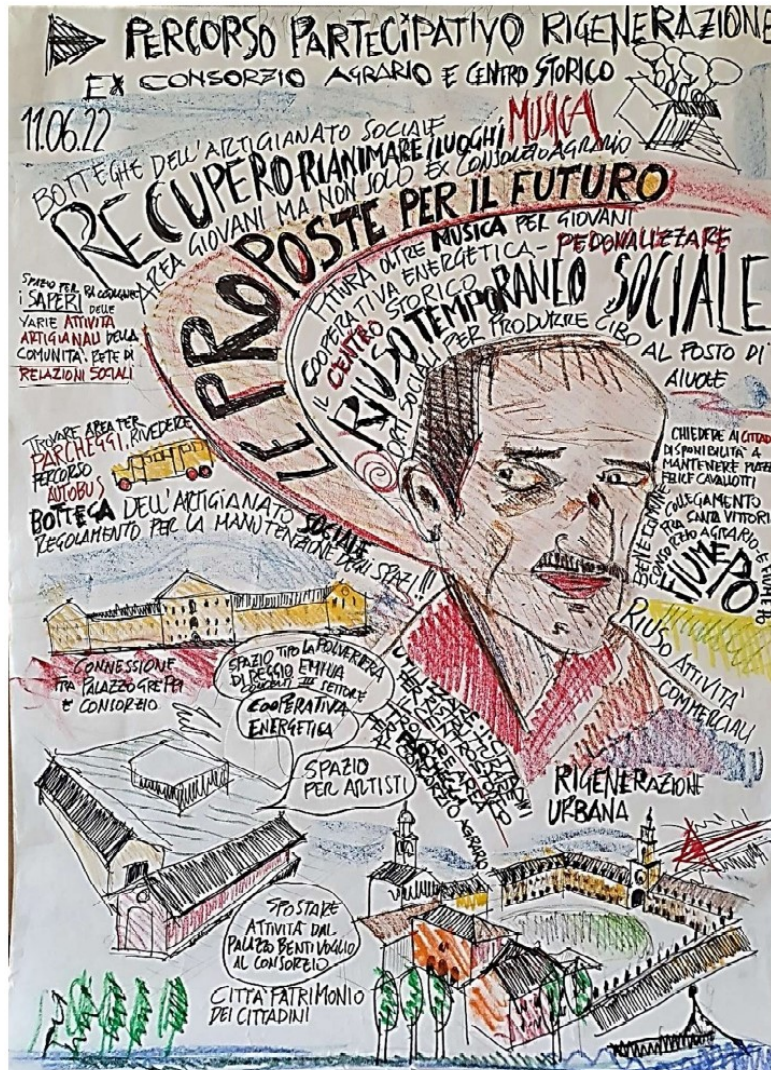 PERCORSO PARTECIPATIVO RIGENERAZIONE
EX CONSORZIO AGRARIO E CENTRO STORICO
11.06.22
BOTTEGHE DELL'ARTIGIANATO SOCIALE
MUSICA
RECUPERO RIANIMARE I LUOGHI
AREA GIOVANI MA NON SOLO EX CONSORZIO AGRARIO
LE PROPOSTE PER IL FUTURO
PITTURA OLTRE MUSICA PER GIOVANI
COOPERATIVA ENERGETICA - PEDONALIZZARE
IL CENTRO STORICO
RIUSO TEMPORANEO SOCIALE
ORTI SOCIALI PER PRODURRE CIBO AL POSTO DI
AIUOLE
SPAZIO PER
i SAPERI DELLE
VARIE ATTIVITÀ
ARTIGIANALI DELLA
COMUNITÀ. RETE DI
RELAZIONI SOCIALI
TROVARE AREA PER
PARCHEGGI, RIVEDERE
PERCORSO
AUTOBUS
BOTTEGA DELL'ARTIGIANATO SOCIALE
REGOLAMENTO PER LA MANUTENZIONE DEGLI SPAZI!!!
CHIEDERE AI CITTADI
DISPONIBILITÀ A
MANTENERE PIAZZA
FELICE CAVALLOTTI
BENE COMUNE
COLLEGAMENTO
FRA SANTA VITTORI
CONSORZIO AGRARIO E FIUME PO
FIUME PO
RIUSO ATTIVITÀ
COMMERCIALI
CONNESSIONE
FRA PALAZZO GREPPI
E CONSORZIO
SPAZIO TIPO LA POLVERIERA
DI REGGIO EMILIA
III SETTORE
COOPERATIVA
ENERGETICA
SPAZIO
PER ARTISTI
AREA
CONSORZIO AGRARIO
RIGENERAZIONE
URBANA
SPOSTARE
ATTIVITÀ DAL
PALAZZO BENTIVOGLIO
AL CONSORZIO
CITTÀ PATRIMONIO
DEI CITTADINI